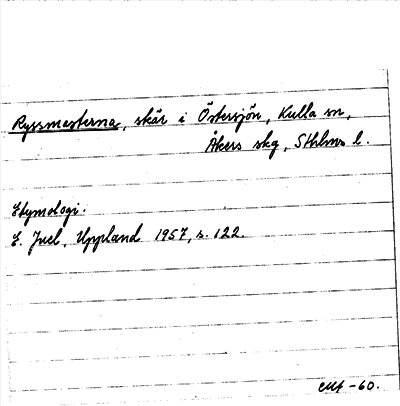 Ryssmasterna, skär i Östersjön, Kulla sn,
Åkers skg, Sthlms l.
Etymologi:
E. Juel, Uppland 1957, s. 122.
-60.